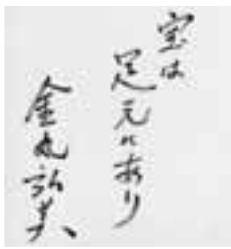 宝は
足元にあり
金丸弘美